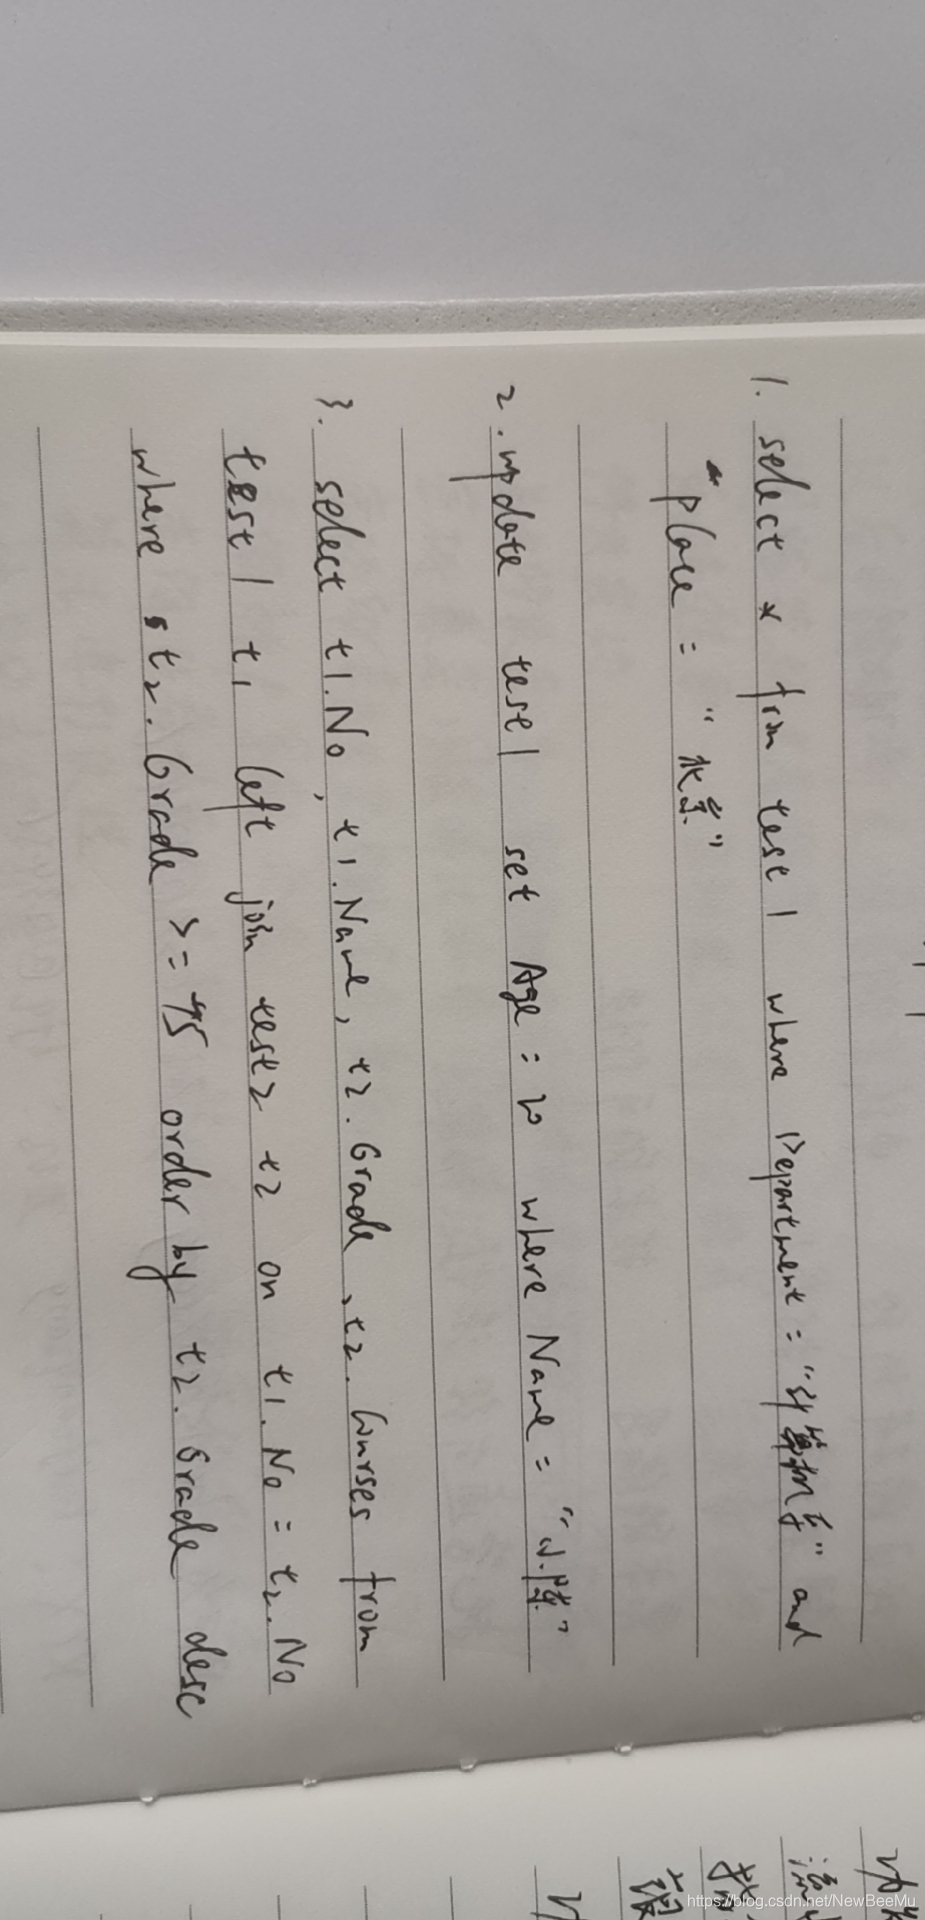 1. select * from test1 where Department = "计算机系" and
place = "北京"
2. update test1 set Age = 20 where Name = "小陈"
3. select t1.No, t1.Name, t2.Grade, t2.Courses from
test1 t1 left join test2 t2 on t1.No = t2.No
where t2.Grade >= 95 order by t2.Grade desc
https://blog.csdn.net/NewBeeMu